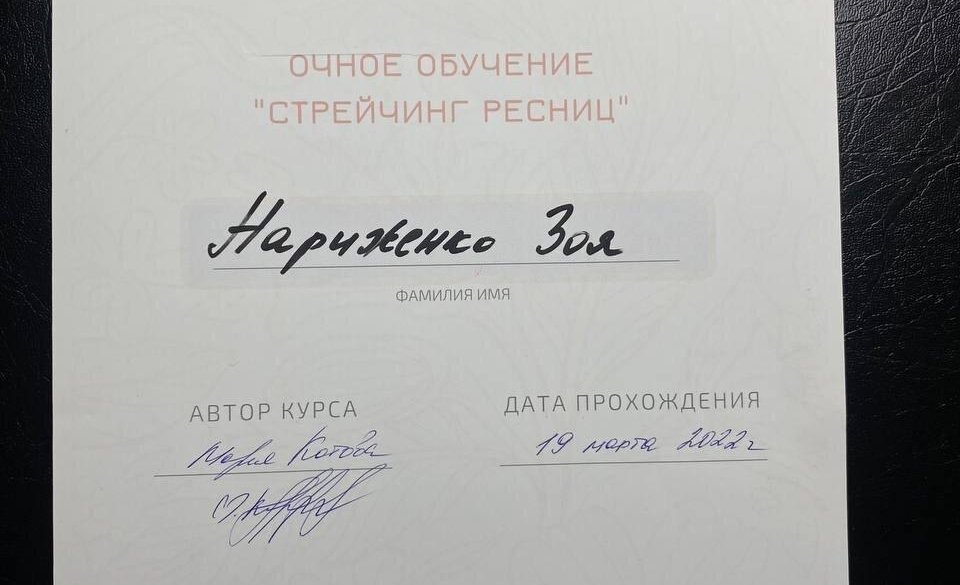 ОЧНОЕ ОБУЧЕНИЕ
"СТРЕЙЧИНГ РЕСНИЦ"
Нариженко Зоя
ФАМИЛИЯ ИМЯ
АВТОР КУРСА
Мария Котова
ДАТА ПРОХОЖДЕНИЯ
19 марта 2022 г